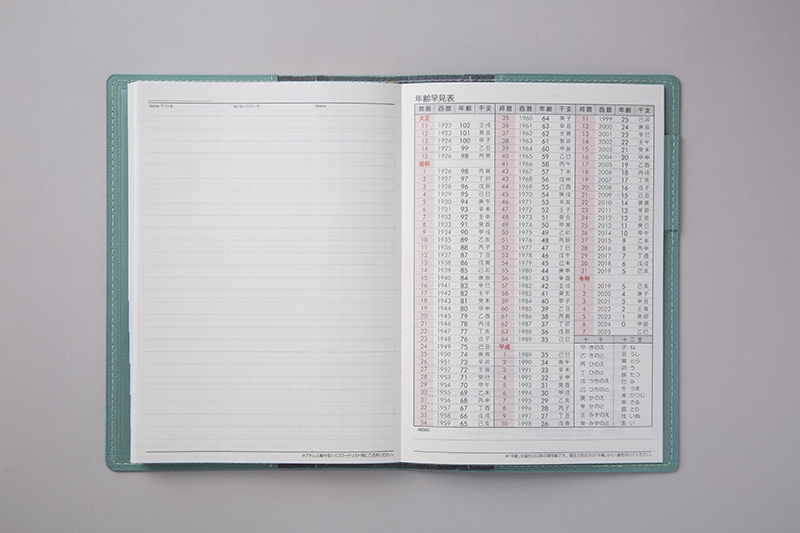 Name/サイト名 Tel/ID・パスワード Memo
※アドレス欄やID・パスワードリスト等にご活用ください。
年齢早見表
邦暦 西暦 年齢 干支
大正
11 1922 102 壬戌
12 1923 101 癸亥
13 1924 100 甲子
14 1925 99 乙丑
15 1926 98 丙寅
昭和
1 1926 98 丙寅
2 1927 97 丁卯
3 1928 96 戊辰
4 1929 95 己巳
5 1930 94 庚午
6 1931 93 辛未
7 1932 92 壬申
8 1933 91 癸酉
9 1934 90 甲戌
10 1935 89 乙亥
11 1936 88 丙子
12 1937 87 丁丑
13 1938 86 戊寅
14 1939 85 己卯
15 1940 84 庚辰
16 1941 83 辛巳
17 1942 82 壬午
18 1943 81 癸未
19 1944 80 甲申
20 1945 79 乙酉
21 1946 78 丙戌
22 1947 77 丁亥
23 1948 76 戊子
24 1949 75 己丑
25 1950 74 庚寅
26 1951 73 辛卯
27 1952 72 壬辰
28 1953 71 癸巳
29 1954 70 甲午
30 1955 69 乙未
31 1956 68 丙申
32 1957 67 丁酉
33 1958 66 戊戌
34 1959 65 己亥
邦暦 西暦 年齢 干支
35 1960 64 庚子
36 1961 63 辛丑
37 1962 62 壬寅
38 1963 61 癸卯
39 1964 60 甲辰
40 1965 59 乙巳
41 1966 58 丙午
42 1967 57 丁未
43 1968 56 戊申
44 1969 55 己酉
45 1970 54 庚戌
46 1971 53 辛亥
47 1972 52 壬子
48 1973 51 癸丑
49 1974 50 甲寅
50 1975 49 乙卯
51 1976 48 丙辰
52 1977 47 丁巳
53 1978 46 戊午
54 1979 45 己未
55 1980 44 庚申
56 1981 43 辛酉
57 1982 42 壬戌
58 1983 41 癸亥
59 1984 40 甲子
60 1985 39 乙丑
61 1986 38 丙寅
62 1987 37 丁卯
63 1988 36 戊辰
64 1989 35 己巳
平成
1 1989 35 己巳
2 1990 34 庚午
3 1991 33 辛未
4 1992 32 壬申
5 1993 31 癸酉
6 1994 30 甲戌
7 1995 29 乙亥
8 1996 28 丙子
9 1997 27 丁丑
10 1998 26 戊寅
邦暦 西暦 年齢 干支
11 1999 25 己卯
12 2000 24 庚辰
13 2001 23 辛巳
14 2002 22 壬午
15 2003 21 癸未
16 2004 20 甲申
17 2005 19 乙酉
18 2006 18 丙戌
19 2007 17 丁亥
20 2008 16 戊子
21 2009 15 己丑
22 2010 14 庚寅
23 2011 13 辛卯
24 2012 12 壬辰
25 2013 11 癸巳
26 2014 10 甲午
27 2015 9 乙未
28 2016 8 丙申
29 2017 7 丁酉
30 2018 6 戊戌
31 2019 5 己亥
令和
1 2019 5 己亥
2 2020 4 庚子
3 2021 3 辛丑
4 2022 2 壬寅
5 2023 1 癸卯
6 2024 0 甲辰
7 2025 乙巳
十干
甲 きのえ
乙 きのと
丙 ひのえ
丁 ひのと
戊 つちのえ
己 つちのと
庚 かのえ
辛 かのと
壬 みずのえ
癸 みずのと
十二支
子 ね
丑 うし
寅 とら
卯 う
辰 たつ
巳 み
午 うま
未 ひつじ
申 さる
酉 とり
戌 いぬ
亥 い
MEMO
※「年齢」の誕生日以降の満年齢です。誕生日前の方は「年齢」から1歳を引いてください。